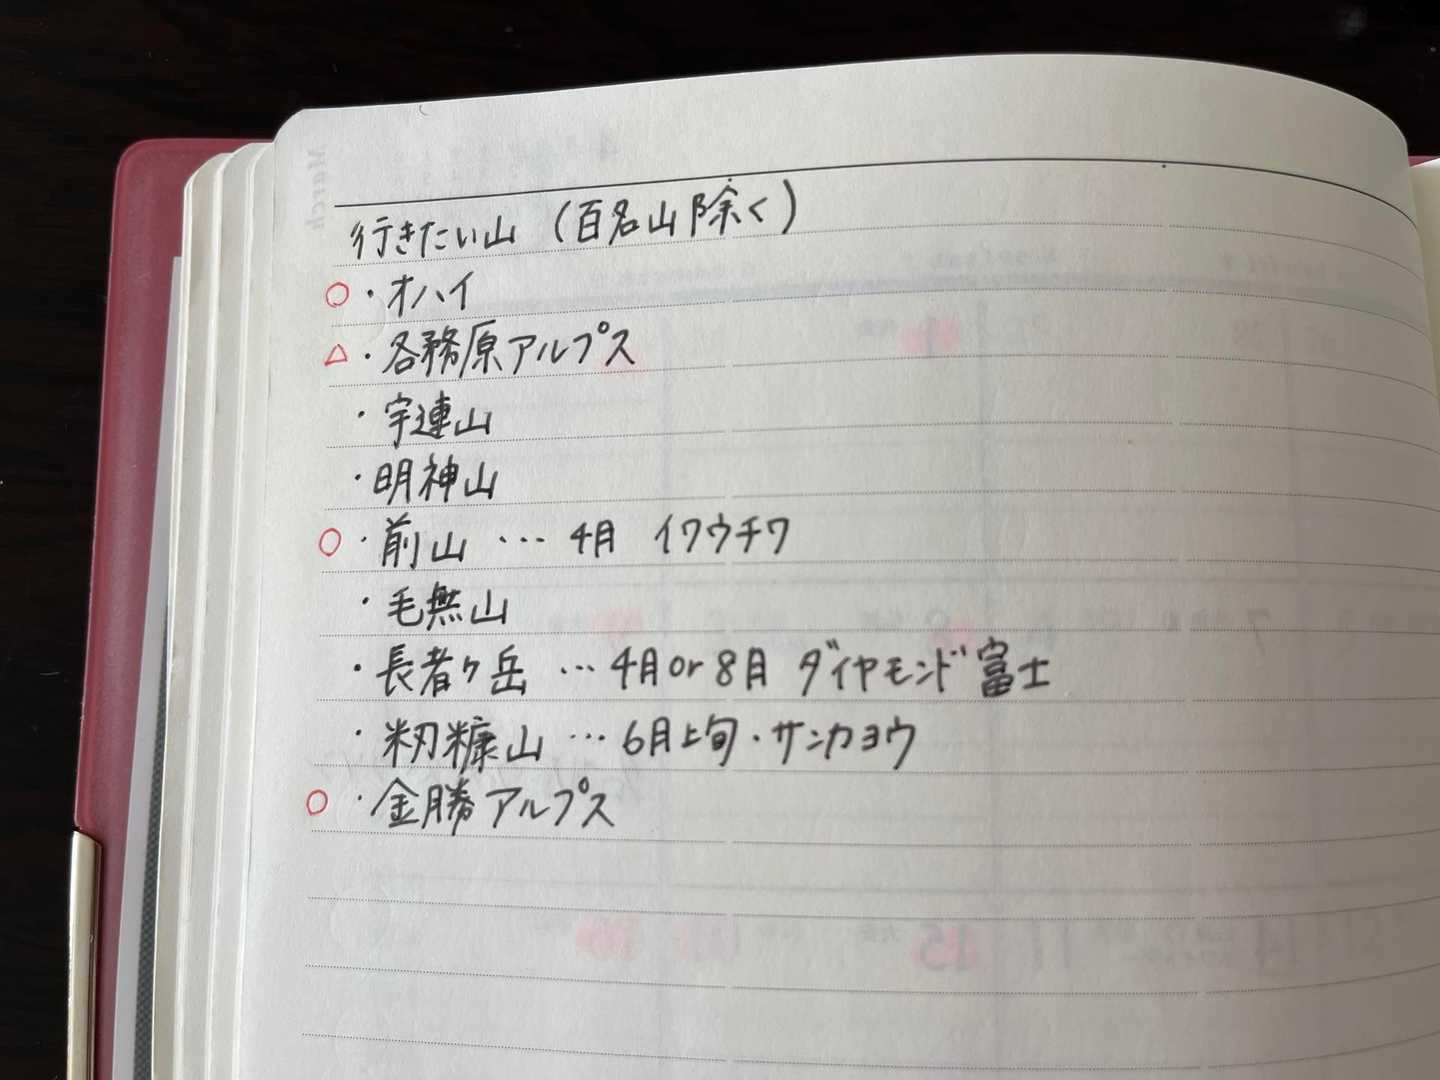 行きたい山（百名山除く）
○・オハイ
△・各務原アルプス
・宇連山
・明神山
○・前山 … 4月 イワウチワ
・毛無山
・長者ヶ岳 … 4月or 8月 ダイヤモンド富士
・籾糠山 … 6月上旬・サンカヨウ
○・金勝アルプス
March